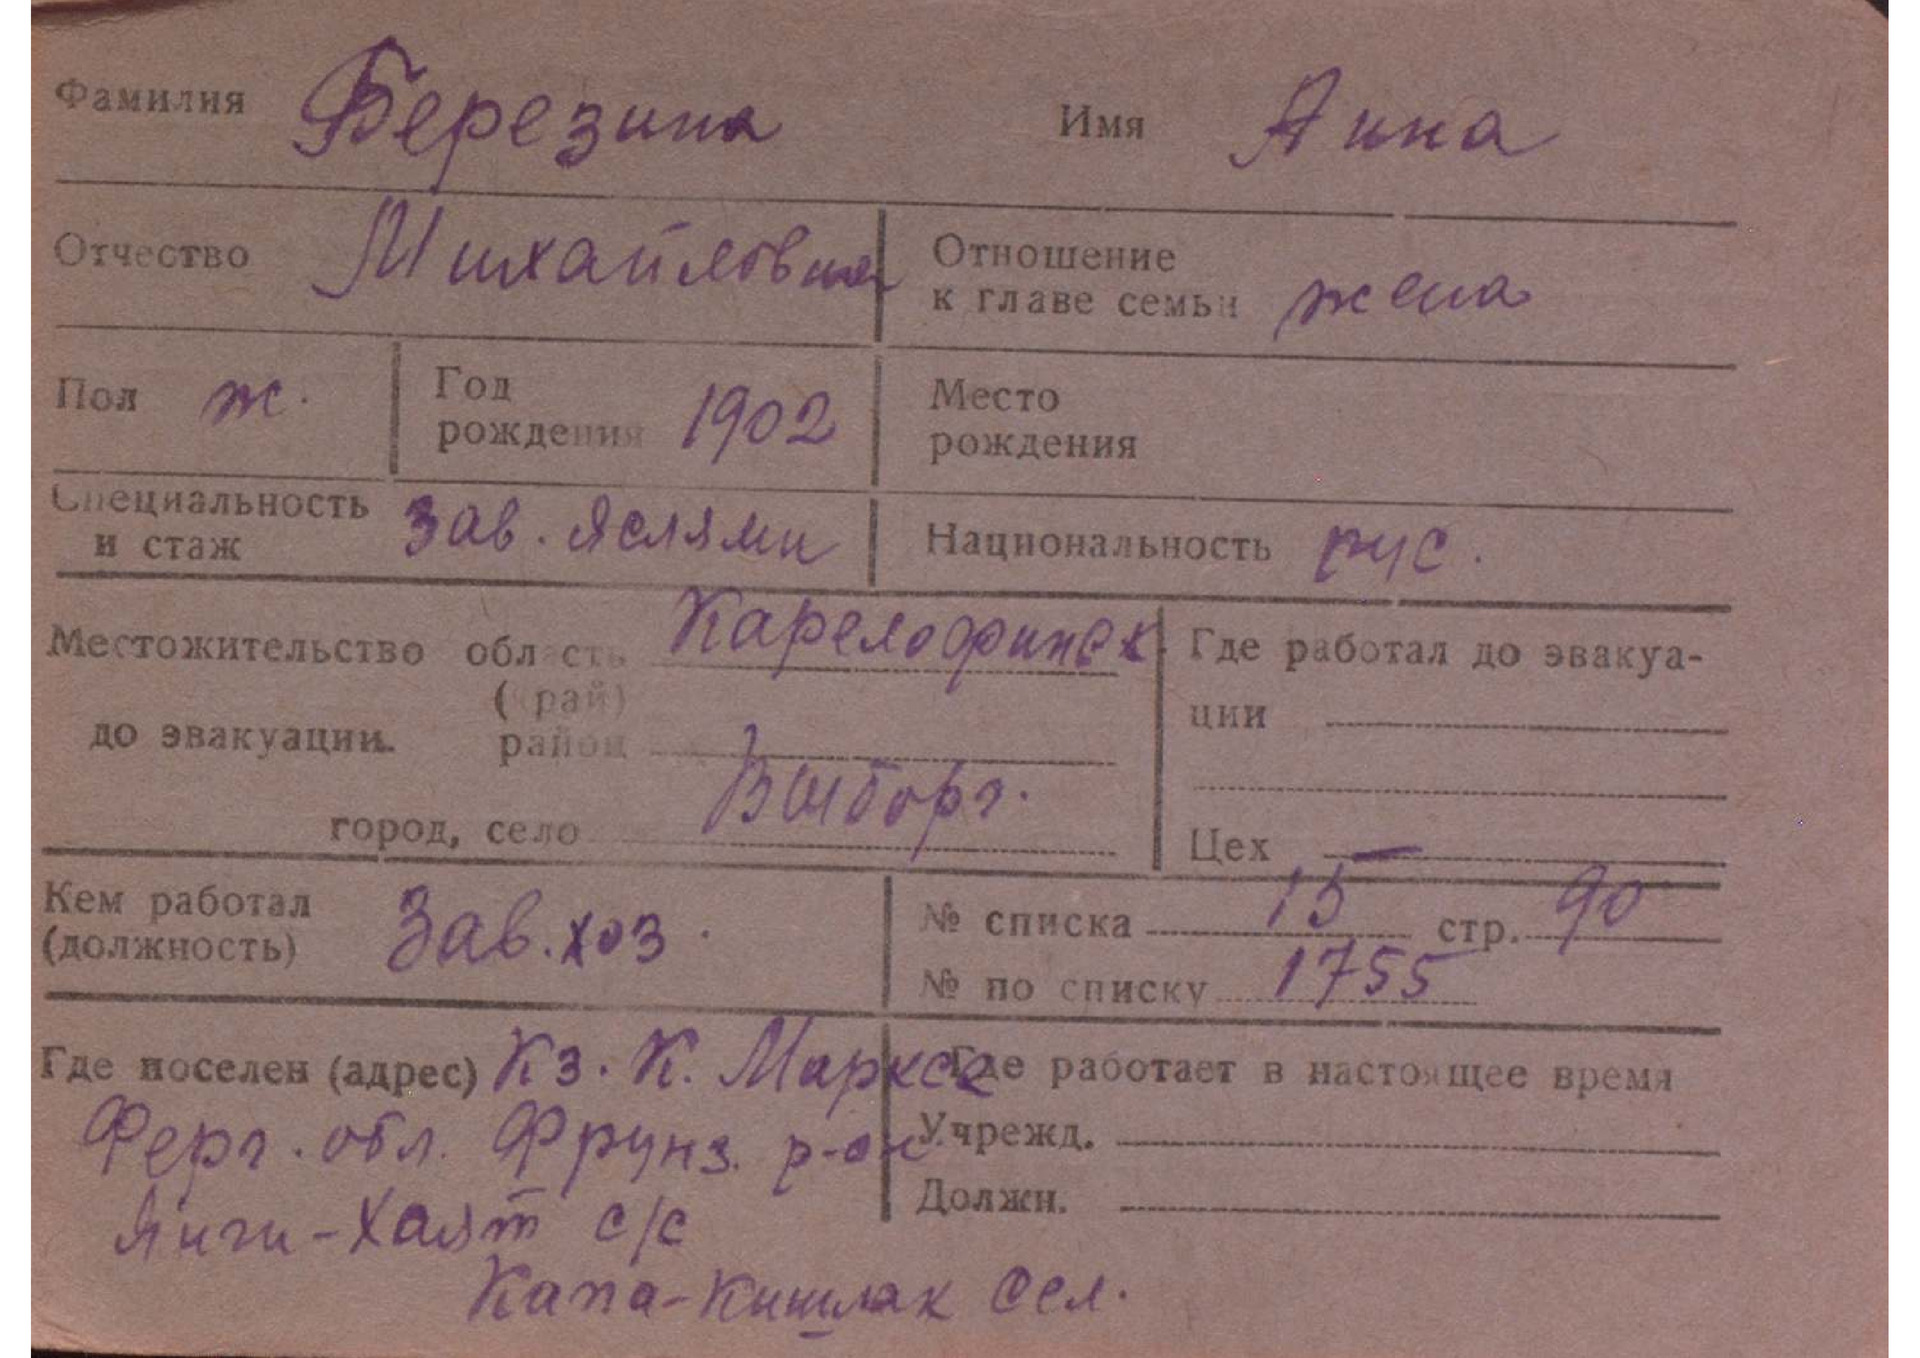 Фамилия Березина Имя Анна
Отчество Михайловна Отношение к главе семьи жена
Пол ж. Год рождения 1902 Место рождения
Специальность и стаж Зав. яслями Национальность рус.
Местожительство до эвакуации. область (край) Карелофинск.
район
город, село Выборг.
Где работал до эвакуа-
ции
Цех —
Кем работал (должность) Зав. хоз.
№ списка 15 стр. 90
№ по списку 1755
Где поселен (адрес) Кз. К. Маркса
Ферг. обл. Фрунз. р-он
Янги-Хаят с/с
Капа-Кишлак сел.
Где работает в настоящее время
Учрежд.
Должн.